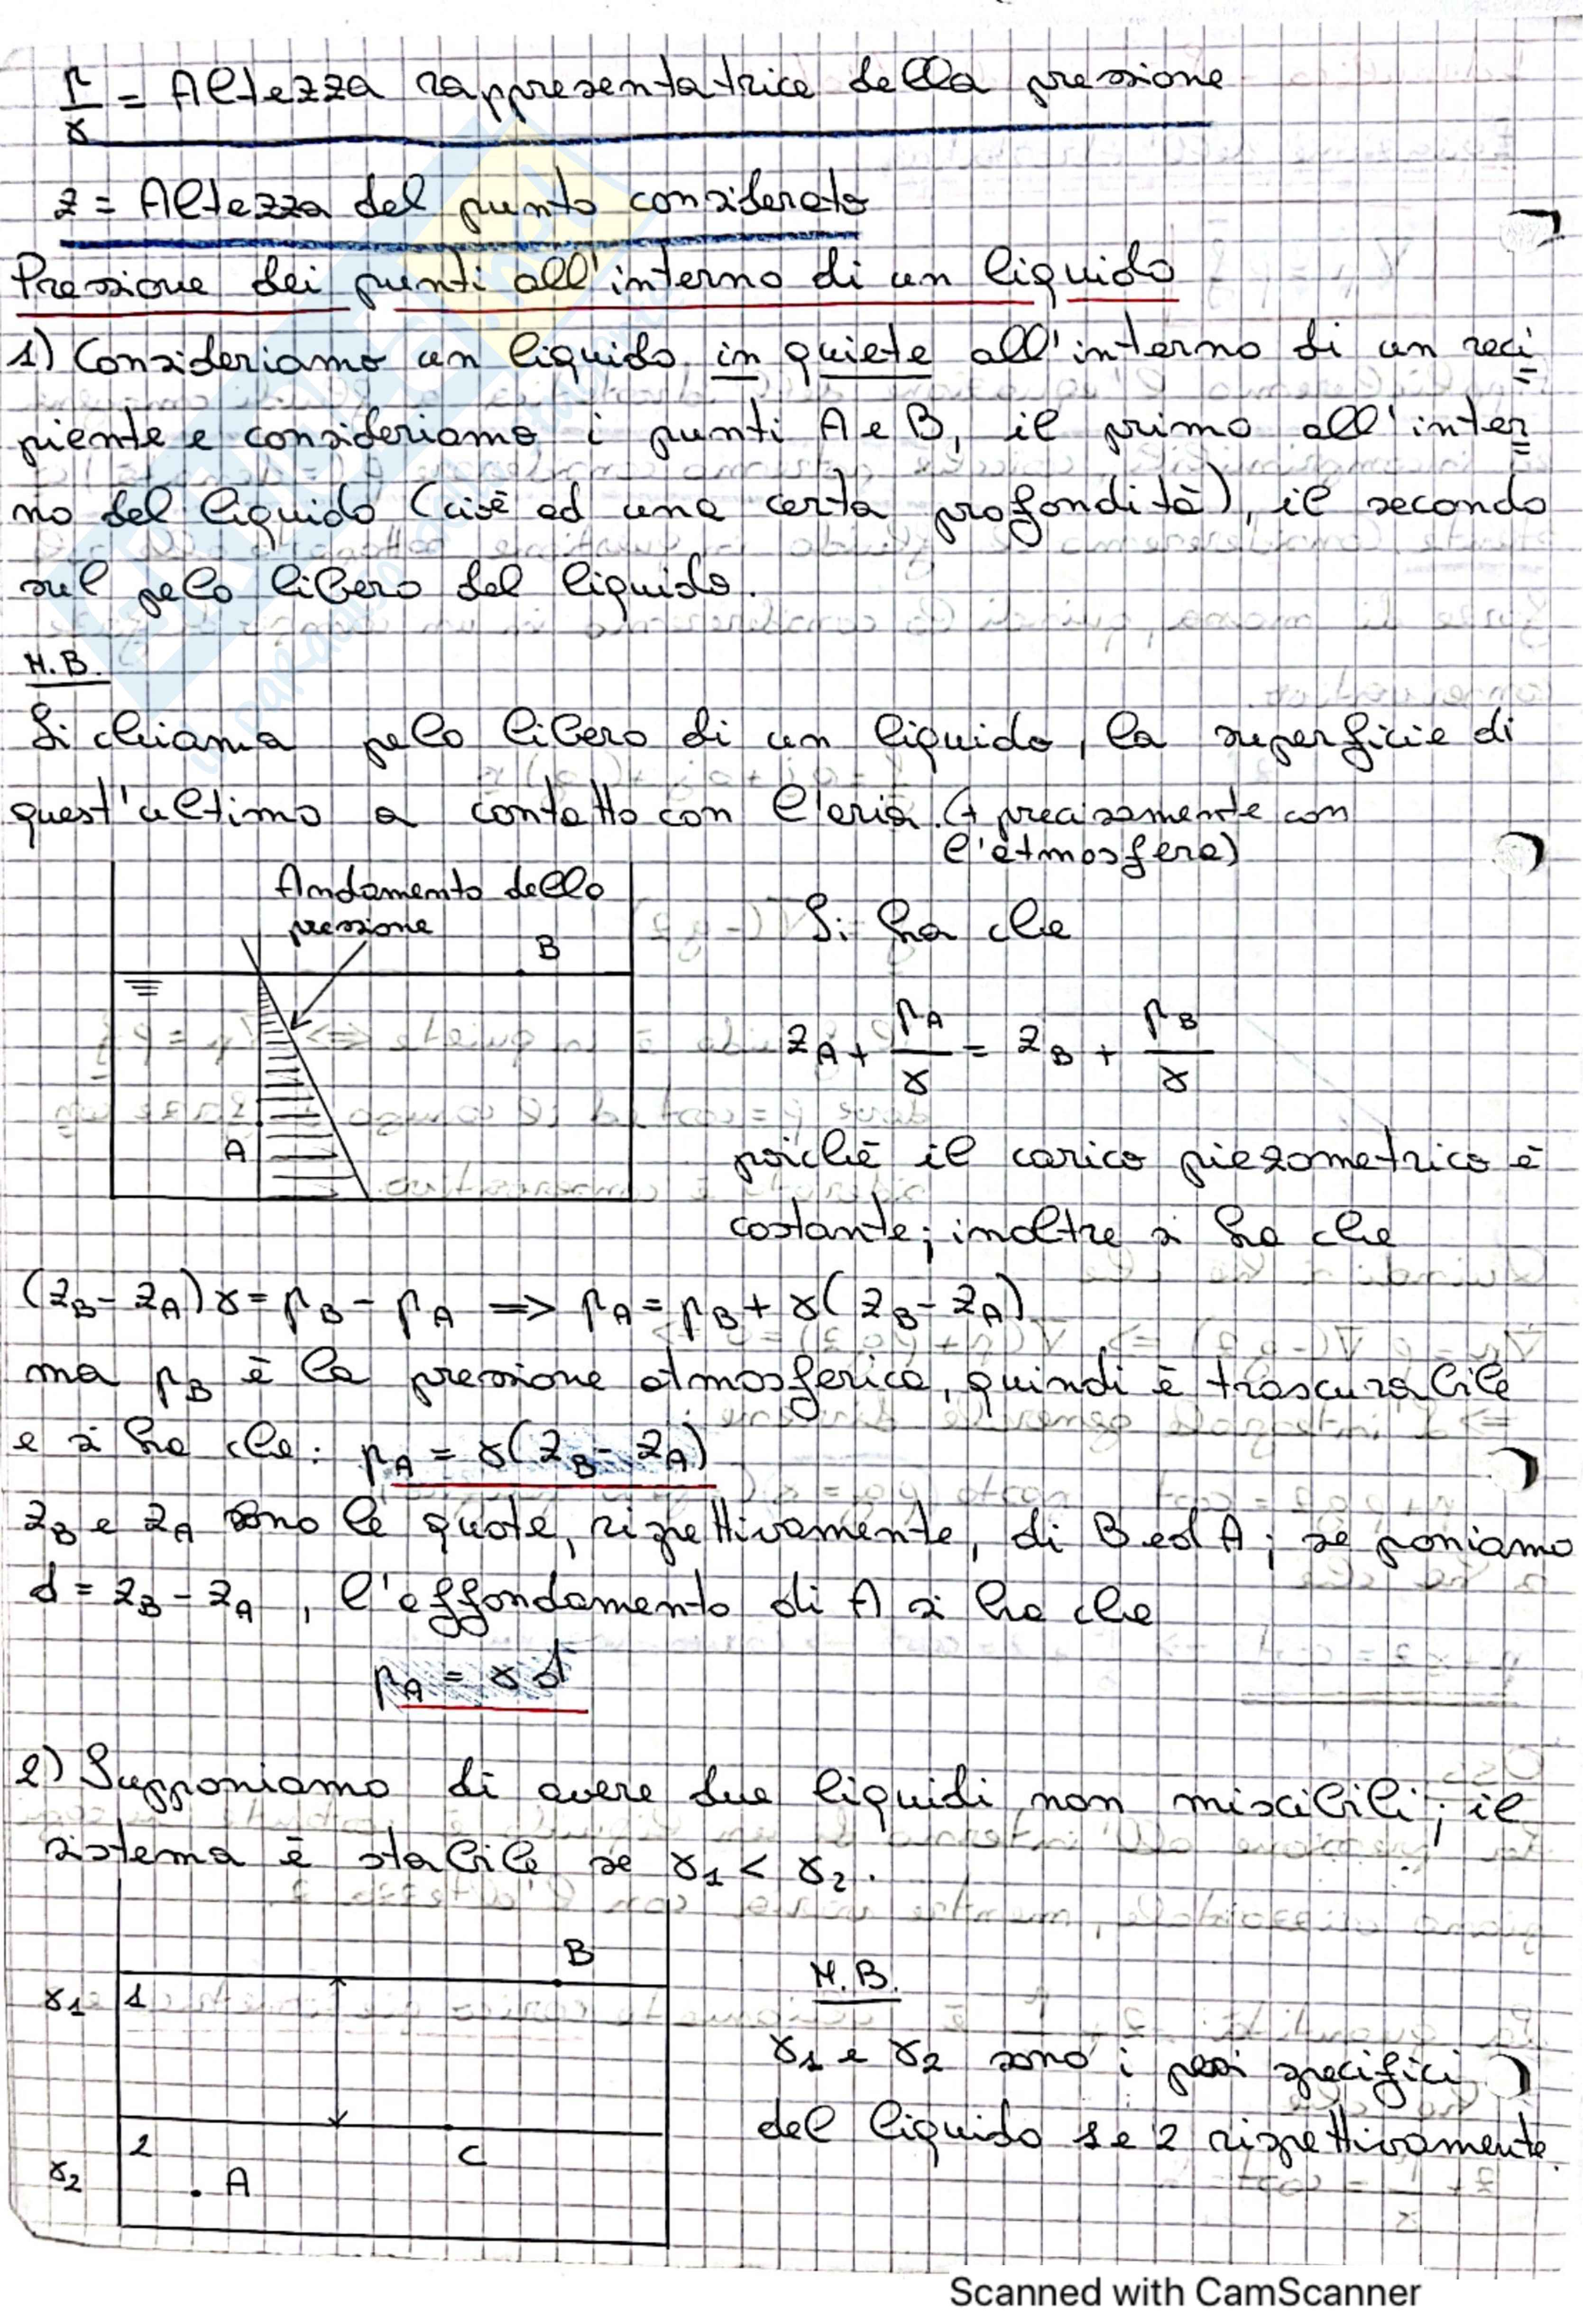 p/γ = Altezza rappresentatrice della pressione
z = Altezza del punto considerato
Pressione dei punti all'interno di un liquido
1) Consideriamo un liquido in quiete all'interno di un reci
piente e consideriamo i punti A e B, il primo all'inter
no del liquido (cioè ad una certa profondità), il secondo
sul pelo libero del liquido.
N.B.
Si chiama pelo libero di un liquido, la superficie di
quest'ultimo a contatto con l'aria. (+ precisamente con
l'atmosfera)
Andamento dello
pressione
B
A
Si ha che
zA + pA/γ = zB + pB/γ
poichè il carico piezometrico è
costante; inoltre si ha che
(zB - zA)γ = pB - pA => pA = pB + γ(zB - zA)
ma pB è la pressione atmosferica, quindi è trascurabile
e si ha che: pA = γ(zB - zA)
zB e zA sono le quote, rispettivamente, di B ed A; se poniamo
d = zB - zA , l'affondamento di A si ha che
pA = γd
2) Supponiamo di avere due liquidi non miscibili; il
sistema è stabile se γ1 < γ2.
B
γ1 1
2 C
γ2 A
N.B.
γ1 e γ2 sono i pesi specifici
del liquido 1 e 2 rispettivamente.
Scanned with CamScanner